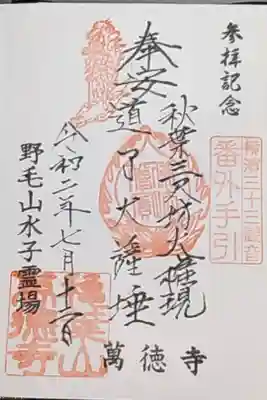 参拝記念
番外手引
奉安
秋葉三尺坊大権現
道了大薩埵
令和二年七月十二日
野毛山水子霊場
萬徳寺